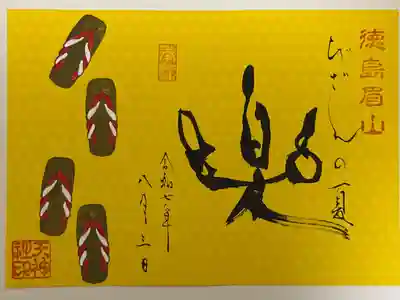 徳島眉山
びざんの夏
楽
令和七年
八月三日